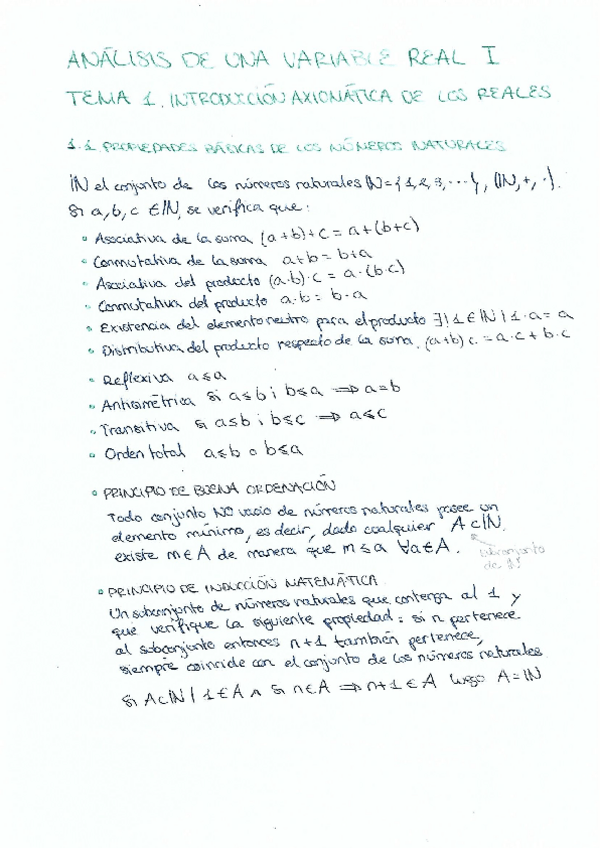 ANÁLISIS DE UNA VARIABLE REAL I
TEMA 1. INTRODUCCIÓN AXIOMÁTICA DE LOS REALES
1.1 PROPIEDADES BÁSICAS DE LOS NÚMEROS NATURALES
ℕ el conjunto de los números naturales ℕ={1,2,3,...}, (ℕ,+,·).
Si a,b,c ∈ℕ, se verifica que:
• Asociativa de la suma (a+b)+c = a+(b+c)
• Conmutativa de la suma a+b = b+a
• Asociativa del producto (a·b)·c = a·(b·c)
• Conmutativa del producto a·b = b·a
• Existencia del elemento neutro para el producto ∃! 1∈ℕ | 1·a = a
• Distributiva del producto respecto de la suma. (a+b)c = a·c + b·c
• Reflexiva a≤a
• Antisimétrica si a≤b i b≤a ⟹ a=b
• Transitiva si a≤b i b≤c ⟹ a≤c
• Orden total a≤b o b≤a
• PRINCIPIO DE BUENA ORDENACIÓN
Todo conjunto NO vacio de números naturales posee un
elemento mínimo, es decir, dado cualquier A⊂ℕ,
existe m∈A de manera que m≤a ∀a∈A.
subconjunto
de ℕ
• PRINCIPIO DE INDUCCIÓN MATEMÁTICA
Un subconjunto de números naturales que contenga al 1 y
que verifique la siguiente propiedad: si n pertenece
al subconjunto entonces n+1 también pertenece,
siempre coincide con el conjunto de los números naturales
Si A⊂ℕ | 1∈A ∧ si n∈A ⟹ n+1∈A luego A=ℕ